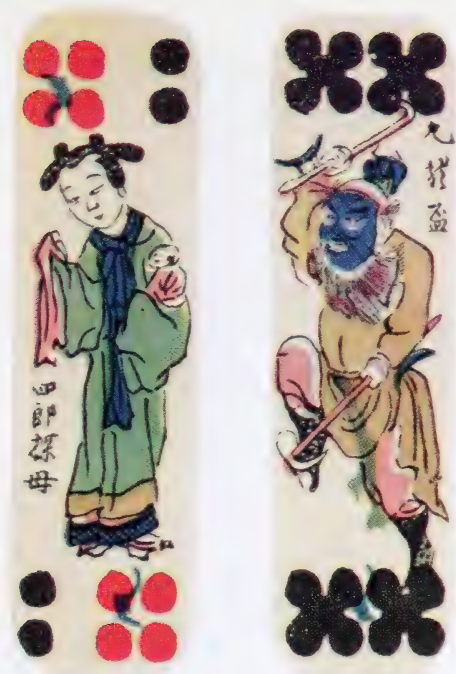 四郎探母
九龍盃